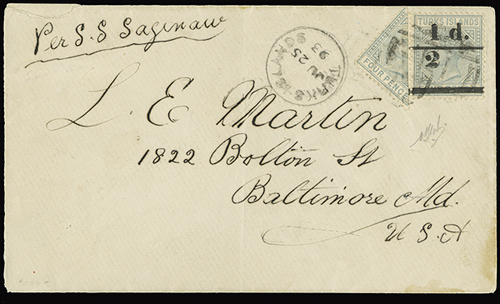 Per S.S Saginaw
TURKS ISLANDS
JU 25
93
FOUR PENCE
TURKS ISLANDS
1 d.
2
L. E. Martin
1822 Bolton St
Baltimore Md.
U S A